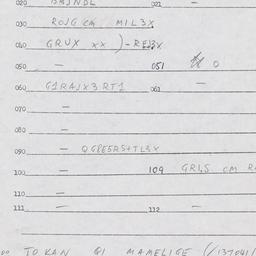 020 021 —
030 ROJG CA MIL3X
040 GRUX XX )-RE13X
050 — 051 0
060 G1RAJX3RT1 061 —
070 —
080 —
090 — QGPE5RS+TL3X
100 — 109 GRLS CM
110 —
111 — 112 —
TO KAN G1 MAMELIGE (/137041/